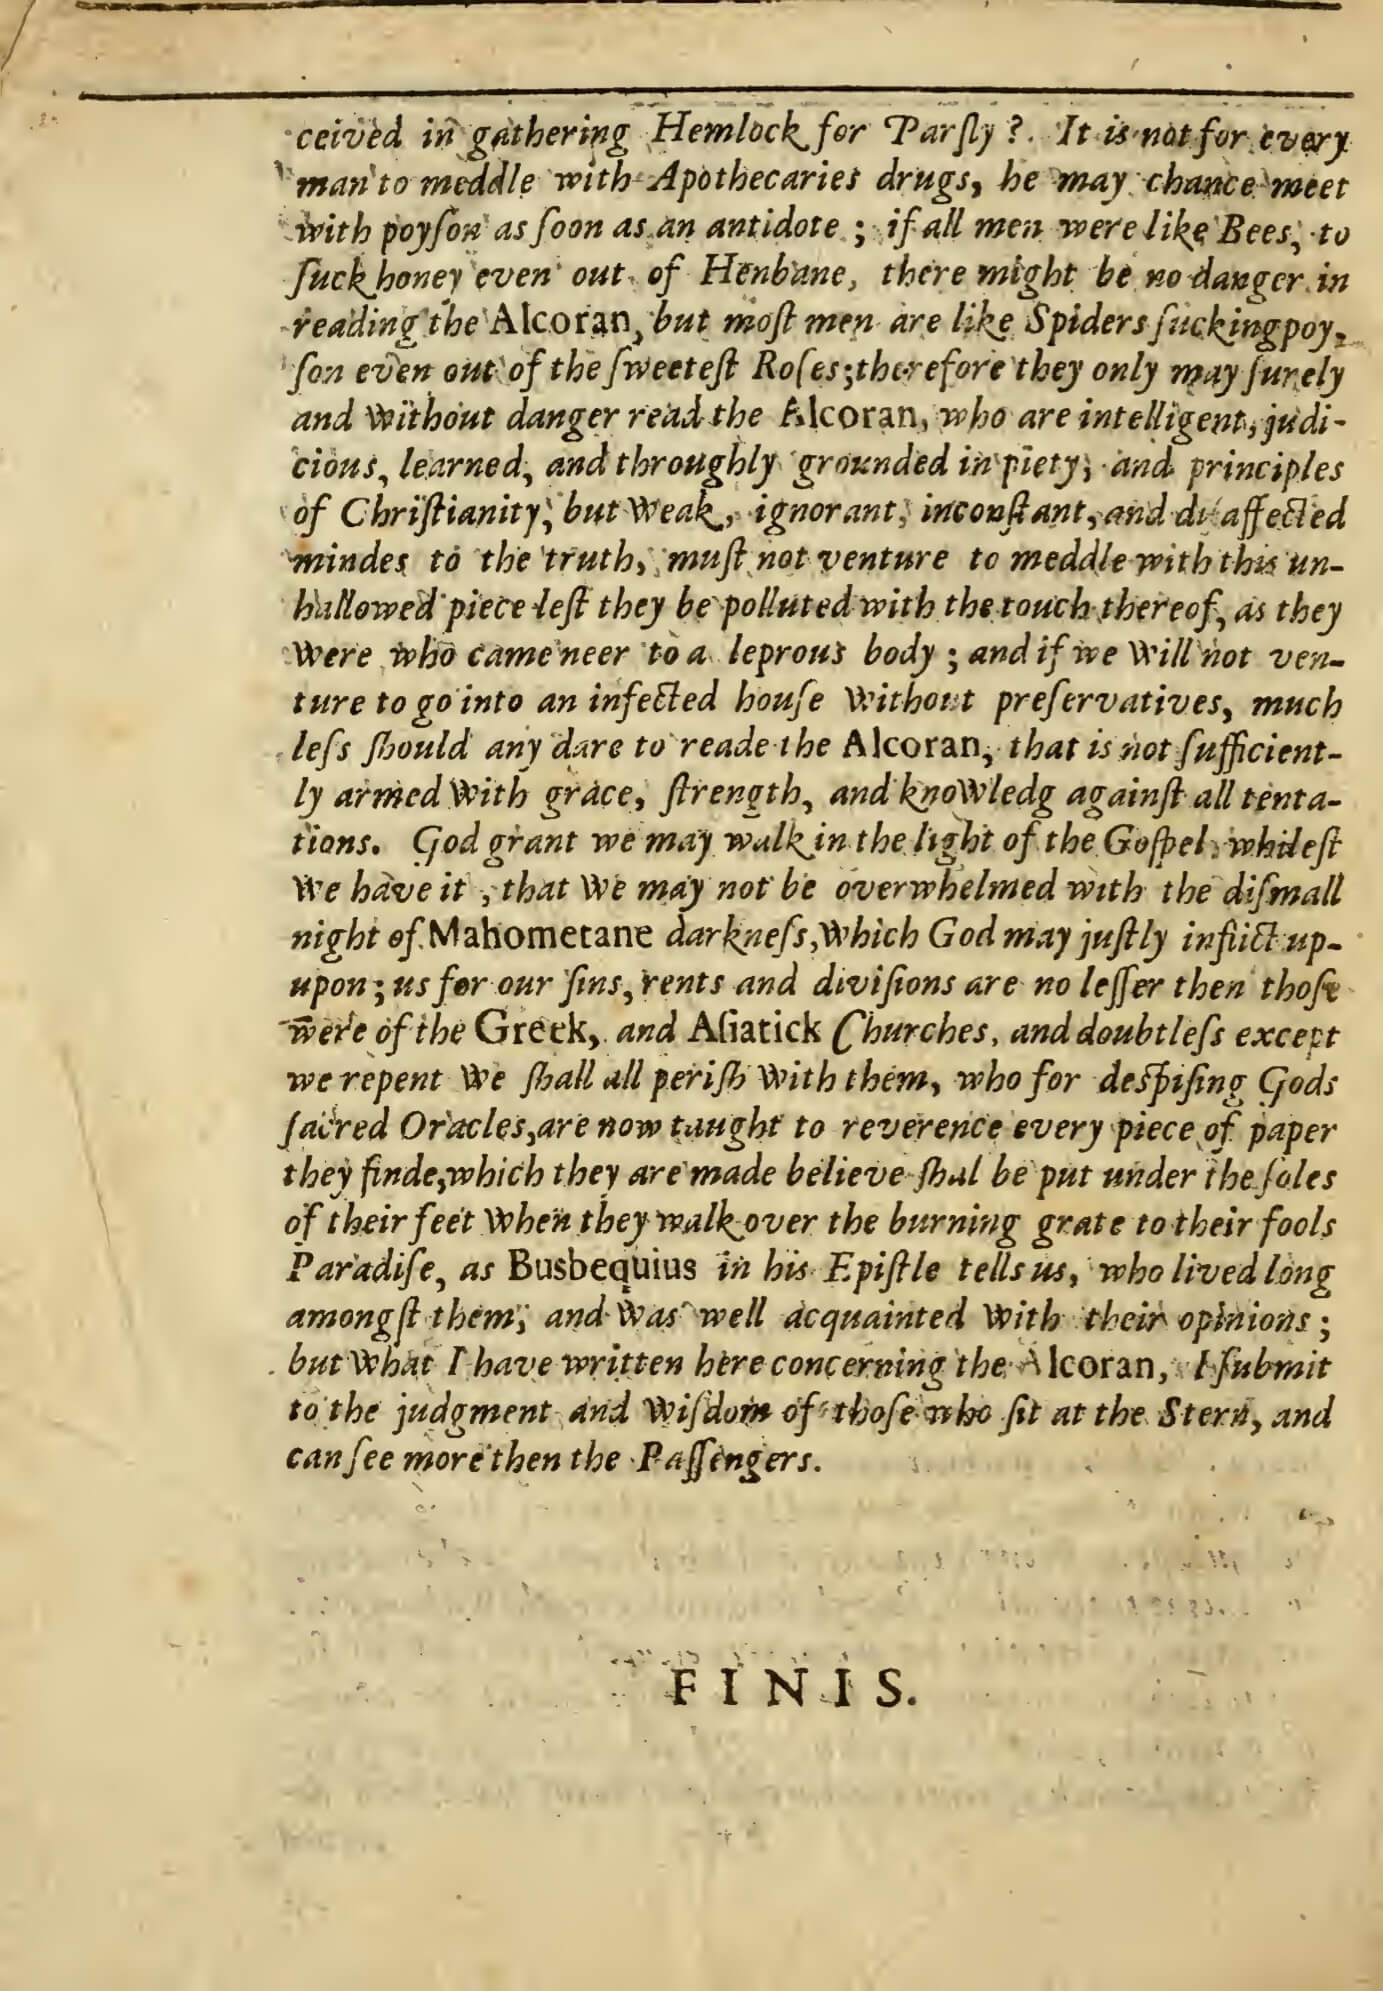 ceived in gathering Hemlock for Parſly? It is not for every
man to meddle with Apothecaries drugs, he may chance meet
with poyſon as ſoon as an antidote ; if all men were like Bees, to
ſuck honey even out of Henbane, there might be no danger in
reading the Alcoran, but moſt men are like Spiders ſucking poy-
ſon even out of the ſweeteſt Roſes; therefore they only may ſurely
and without danger read the Alcoran, who are intelligent, judi-
cious, learned, and throughly grounded in piety, and principles
of Chriſtianity, but weak, ignorant, inconſtant, and diſaffected
mindes to the truth, muſt not venture to meddle with this un-
hallowed piece leſt they be polluted with the touch thereof, as they
were who came neer to a leprous body ; and if we will not ven-
ture to go into an infected houſe without preſervatives, much
leſs ſhould any dare to reade the Alcoran, that is not ſufficient-
ly armed with grace, ſtrength, and knowledg againſt all tenta-
tions. God grant we may walk in the light of the Goſpel, whileſt
we have it , that we may not be overwhelmed with the diſmall
night of Mahometane darkneſs, which God may juſtly inflict up-
upon; us for our ſins, rents and diviſions are no leſſer then thoſe
were of the Greek, and Aſiatick Churches, and doubtleſs except
we repent we ſhall all periſh with them, who for deſpiſing Gods
ſacred Oracles, are now taught to reverence every piece of paper
they finde, which they are made believe ſhal be put under the ſoles
of their feet when they walk over the burning grate to their fools
Paradiſe, as Busbequius in his Epiſtle tells us, who lived long
amongſt them, and was well acquainted with their opinions ;
but what I have written here concerning the Alcoran, I ſubmit
to the judgment and wiſdom of thoſe who ſit at the Stern, and
can ſee more then the Paſſengers.
FINIS.